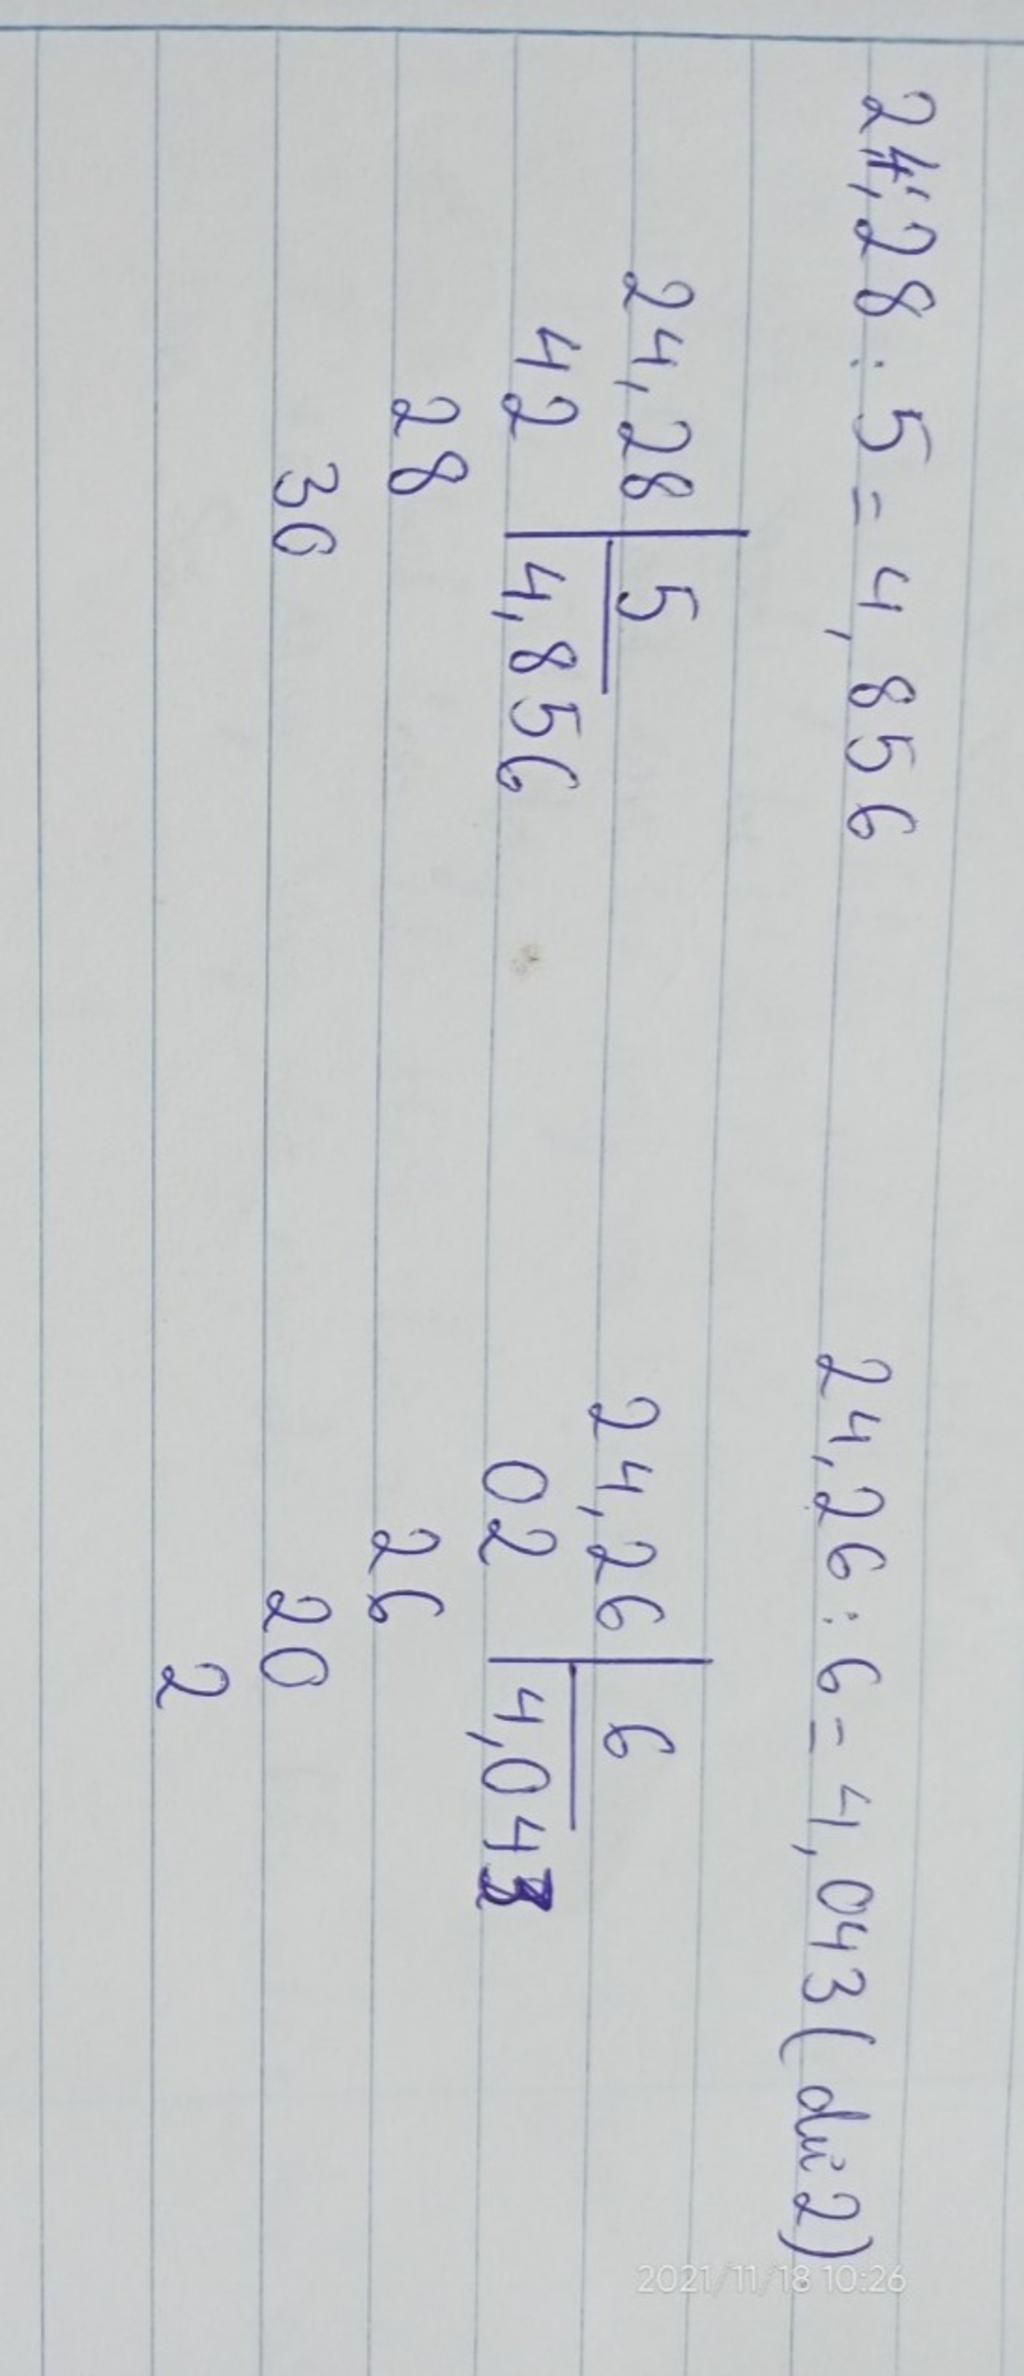 24,28 : 5 = 4,856 24,26 : 6 = 4,043 (dư 2)
24,28 | 5 24,26 | 6
42 | 4,856 02 | 4,043
28 26
30 20
2
2021/11/18 10:26